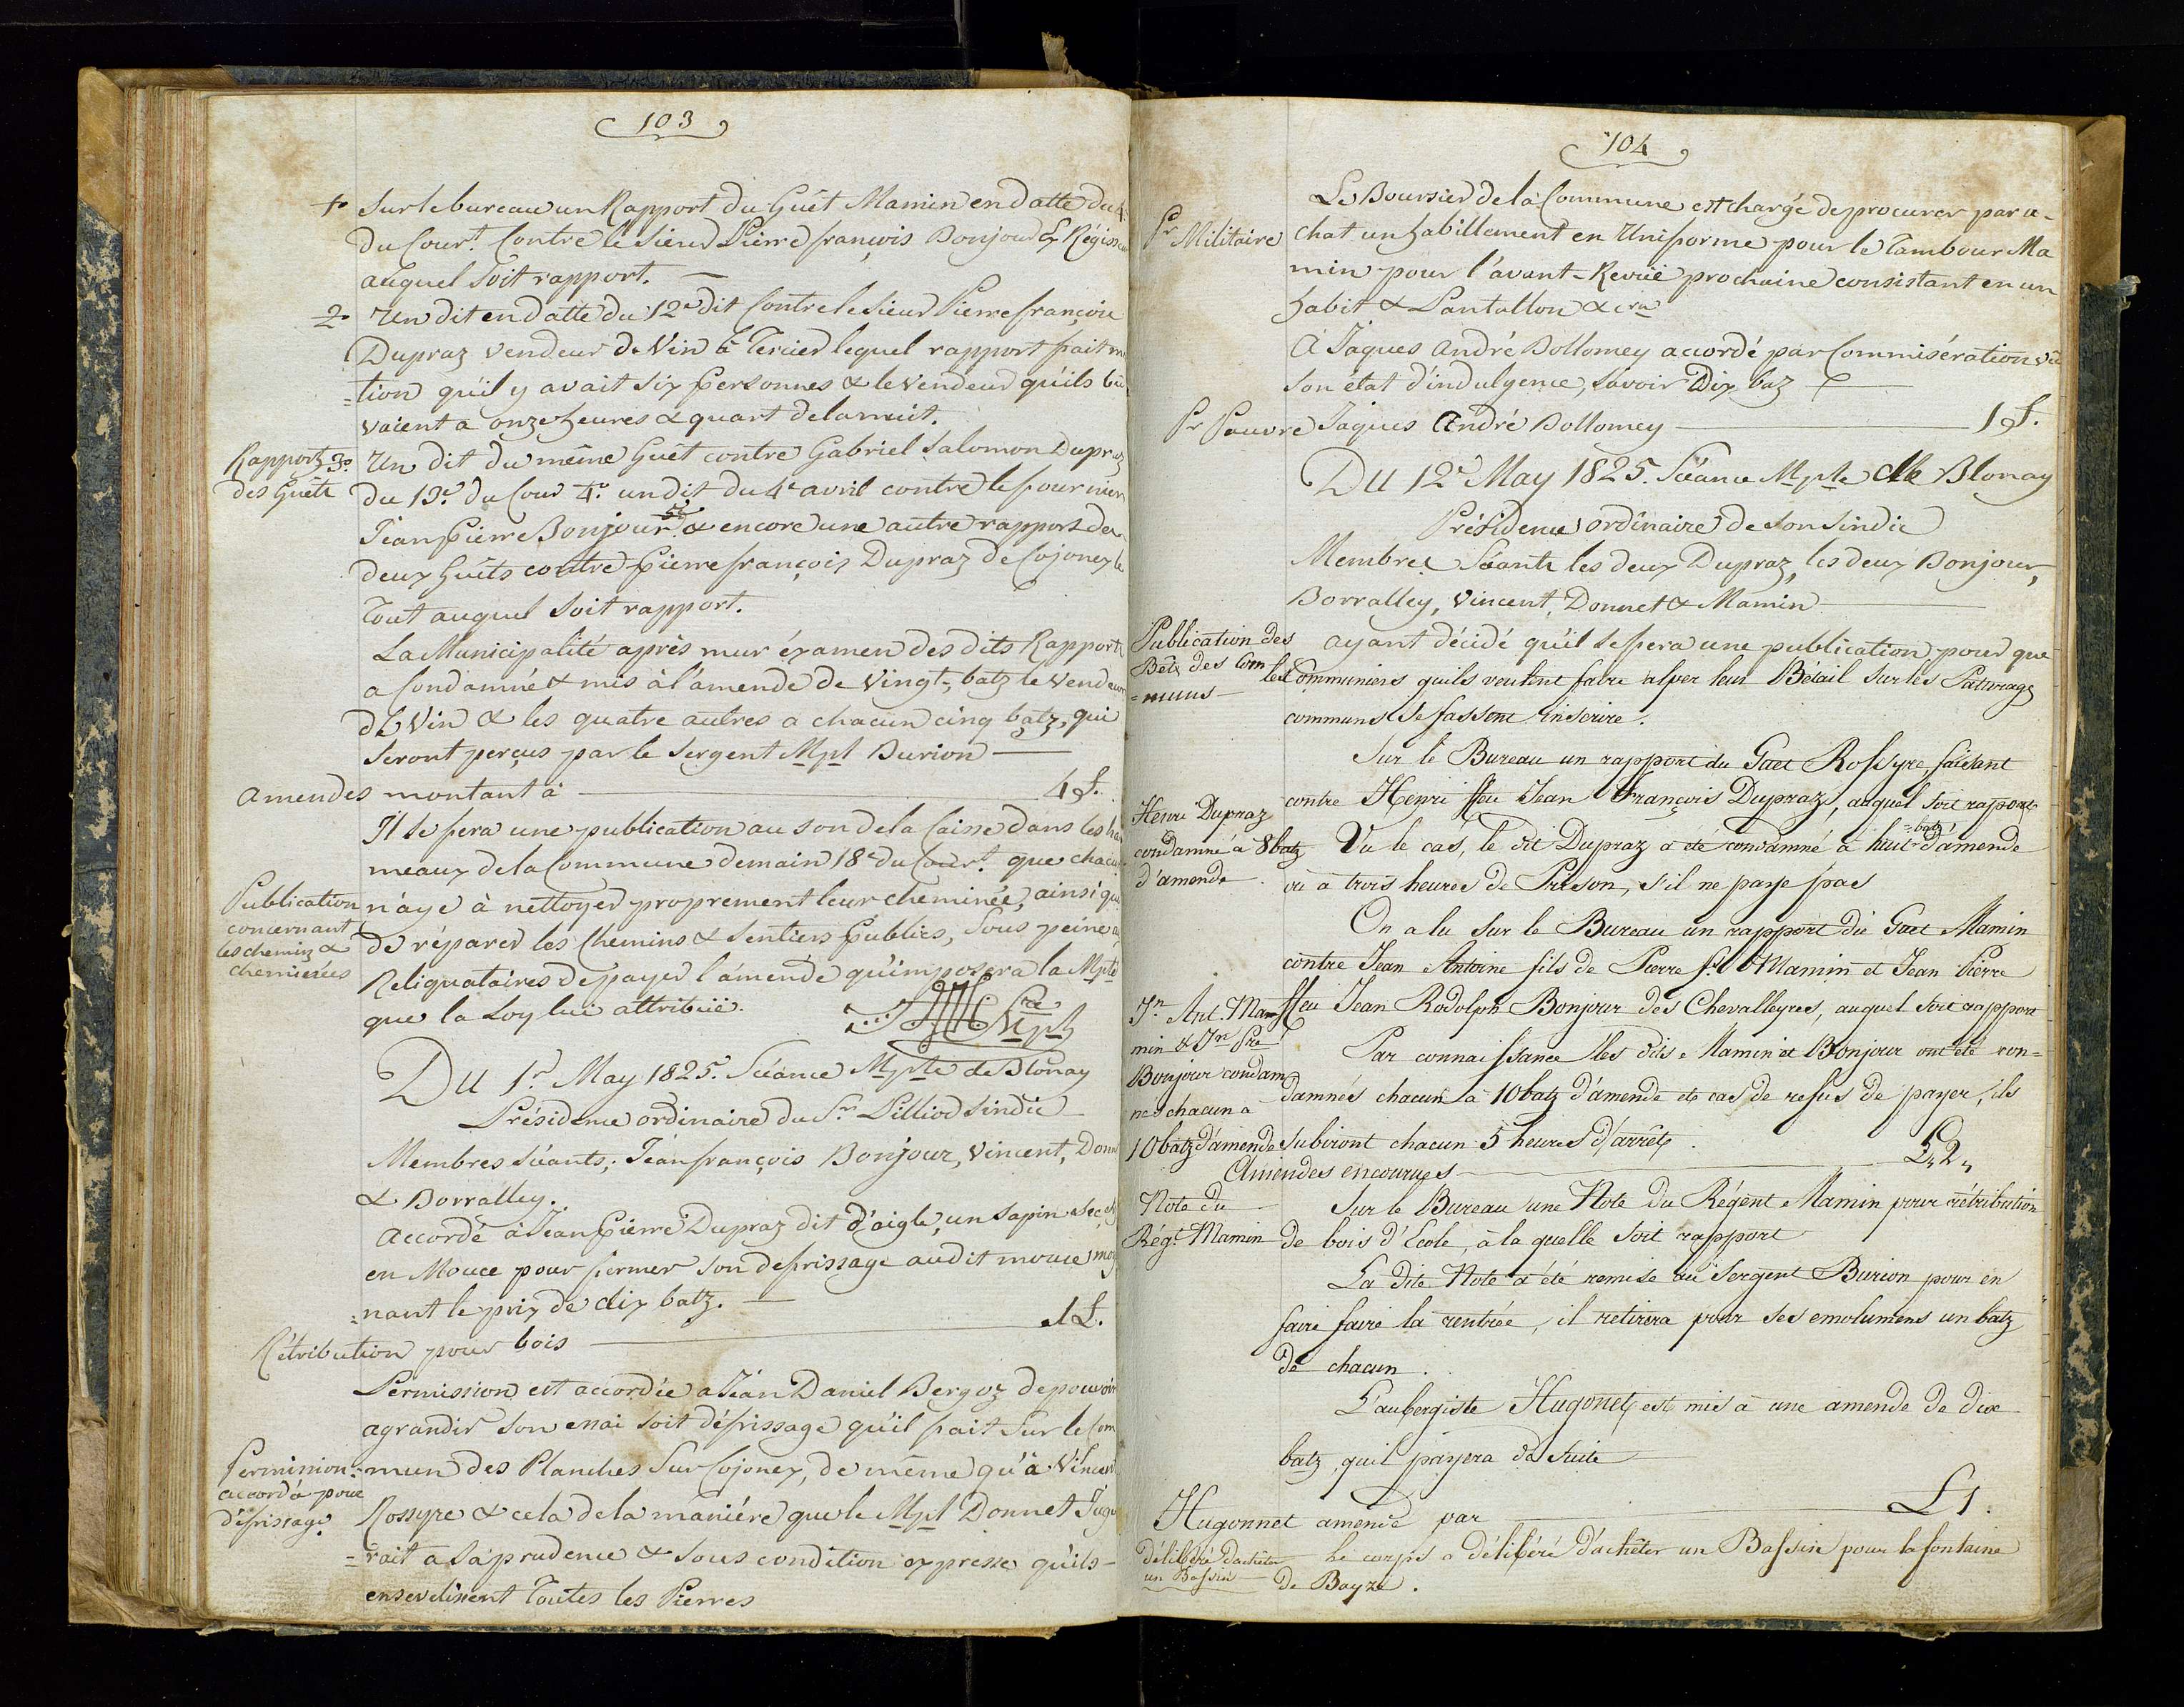 103
1º Sur le bureau un Rapport du Guêt Mamin en datte du 4
du Cour.t Contre le Sieur Pierre françois Bonjour Ex Régisseur
auquel soit rapport. —
2º Un dit en datte du 12e dit Contre le Sieur Pierre françois
Dupraz vendeur de Vin à Tercier lequel rapport fait m
=tion qu'il y avait six personnes & le vendeur qu'ils bu
vaient a onze heures & quart de la nuit.
Rapports
des Guêts
3º Un dit du même Guêt contre Gabriel Salomon Dupraz
du 13e du Cour 4º un dit du 4e avril contre le fournier
Jean Pierre Bonjour 5º & encore une autre rapport de
deux Guêts contre Pierre françois Dupraz de Cojonex le
Tout auquel soit rapport.
La Municipalité après mur éxamen des dits Rapports
a Condamné & mis à l'amende de Vingt, batz le Vendeur
de Vin & les quatre autres a chacun cinq batz, qui
seront perçus par le Sergent Mpl Burion —
amendes montant à — 4 £.
Il se fera une publication au son de la Caisse dans les ha
meaux de la Commune demain 18e du Cour.t que chacun
Publication
concernant
les chemins &
cheminées
n'aye à nettoyer proprement leur cheminée, ainsi que
de réparer les Chemins & Sentiers Publics, Sous peine au
Reliquataires de payer l'amende qu'imposera la Mplté
que la Loy lui attribuë.
Du 1.r May 1825. Séance Mplte de Blonay
Présidence ordinaire du Sr Pilliod Sindic
Membres Séants; Jean françois Bonjour, Vincent, Donn
& Borralley.
Accordé à Jean Pierre Dupraz dit d'aigle, un sapin sec
en Mouce pour fermer son defrissage au dit mouce moy
=nant le prix de dix batz. —
Rétribution pour bois — 1 £.
Permission est accordée a Jean Daniel Bergoz de pouvoir
agrandir son essai soit défrissage qu'il fait Sur le Com
Permission
accordé pour
défrissage.
=mun des Planches Sur Cojonex, de même qu'à Vincent
Rossyre & cela de la maniére que le Mpl Donnet Juge
=rait a sa prudence & sous condition expresse qu'ils
ensevelissent Toutes les Pierres
104
Le Boursier de la Commune est chargé de procurer par a-
Pr Militaire
chat un habillement en Uniforme pour le Tambour Ma
min pour l'avant-Revuë prochaine consistant en un
habit & Pantallon &cra
A Jaques André Dollomey accordé par Commisération vu
son état d'indulgence, savoir Dix baz —
Pr Pauvre Jaques André Dollomey — 1 £.
Du 12e May 1825. Séance Mplte de Blonay
Présidence ordinaire de son Sindic
Membres Séants les deux Dupraz, les deux Bonjour,
Borralley, Vincent, Donnet & Mamin —
Publication des
Bêtes des Com
=muns —
ayant décidé qu'il se fera une publication pour que
les Communiers qu'ils veulent faire alper leur Bétail sur les Paturages
communs se fassent inscrire.
Sur le Bureau un rapport du Guet Rossyre, faisant
contre Henri ffeu Jean François Dupraz, auquel soit raport
Henri Dupraz
condamné à 8 batz
d'amende
Vu le cas, le dit Dupraz a été condamné à huit =batz d'amende
ou à trois heures de Prison, s'il ne paye pas
On a lu sur le Bureau un rapport du Guet Mamin
contre Jean Antoine fils de Pierre Mamin et Jean Pierre
ffeu Jean Rodolph Bonjour des Chevalleyres, auquel soit rapport
Jn Ant. Mam
min & Jn Pre
Bonjour condam
nes chacun a
10 batz d'amende
Par connaissance les dits Mamin et Bonjour ont été con=
damnés chacun à 10 batz d'amende et cas de refus de payer, ils
subiront chacun 5 heures d'arrêts.
Amendes encourues — £ 2 "
Note du
Régt Mamin
Sur le Bureau une Note du Régent Mamin pour rétribution
de bois d'Ecole, à la quelle soit rapport
La dite Note a été remise au Sergent Burion pour en
faire faire la rentrée, il retirera pour ses emolumens un batz
de chacun.
L'aubergiste Hugonet, est mis à une amende de dix
batz qu'il payera de suite
Hugonnet amendé par — £ 1.
délibéré d'achêter
un Bassin
Le corps a délibéré d'achêter un Bassin pour la fontaine
de Bayze.